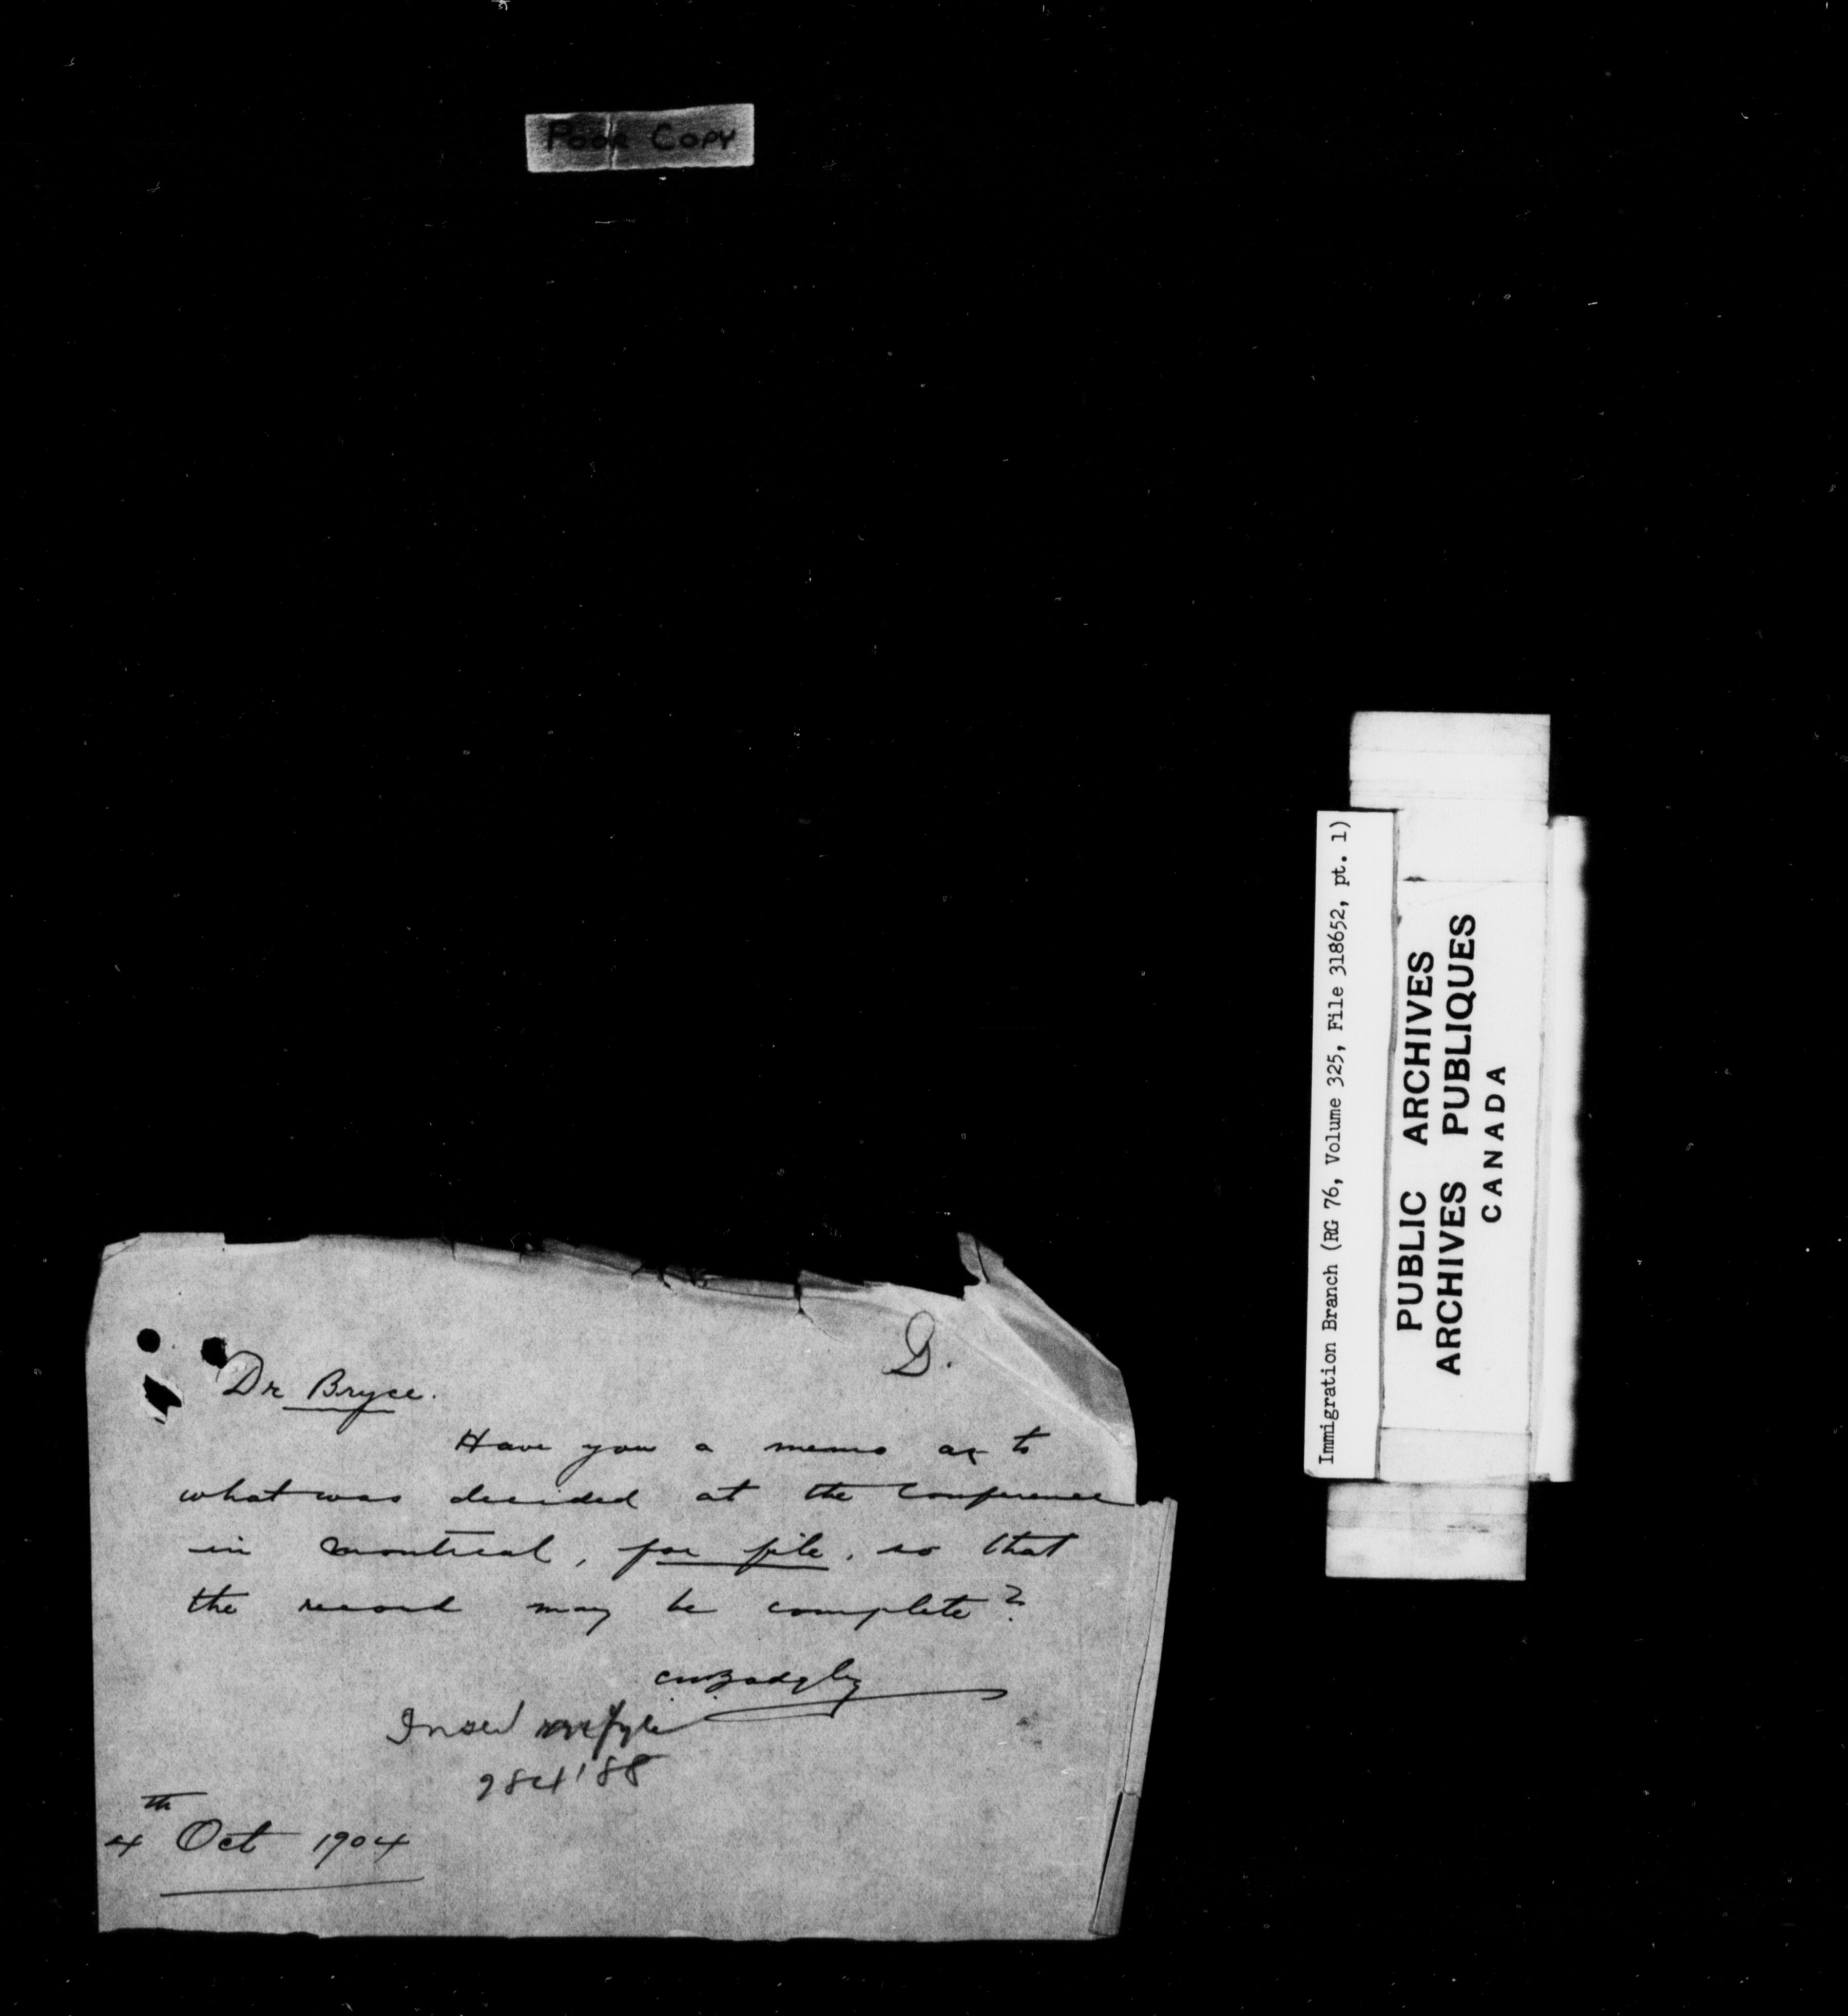 Poor Copy
D.
Dr Bryce.
Have you a memo as to
what was decided at the Conference
in Montreal, for file, so that
the record may be complete?
CW Badgley
Insert on fyle
4th Oct 1904
Immigration Branch (RG 76, Volume 325, File 318652, pt. 1)
PUBLIC ARCHIVES
ARCHIVES PUBLIQUES
CANADA